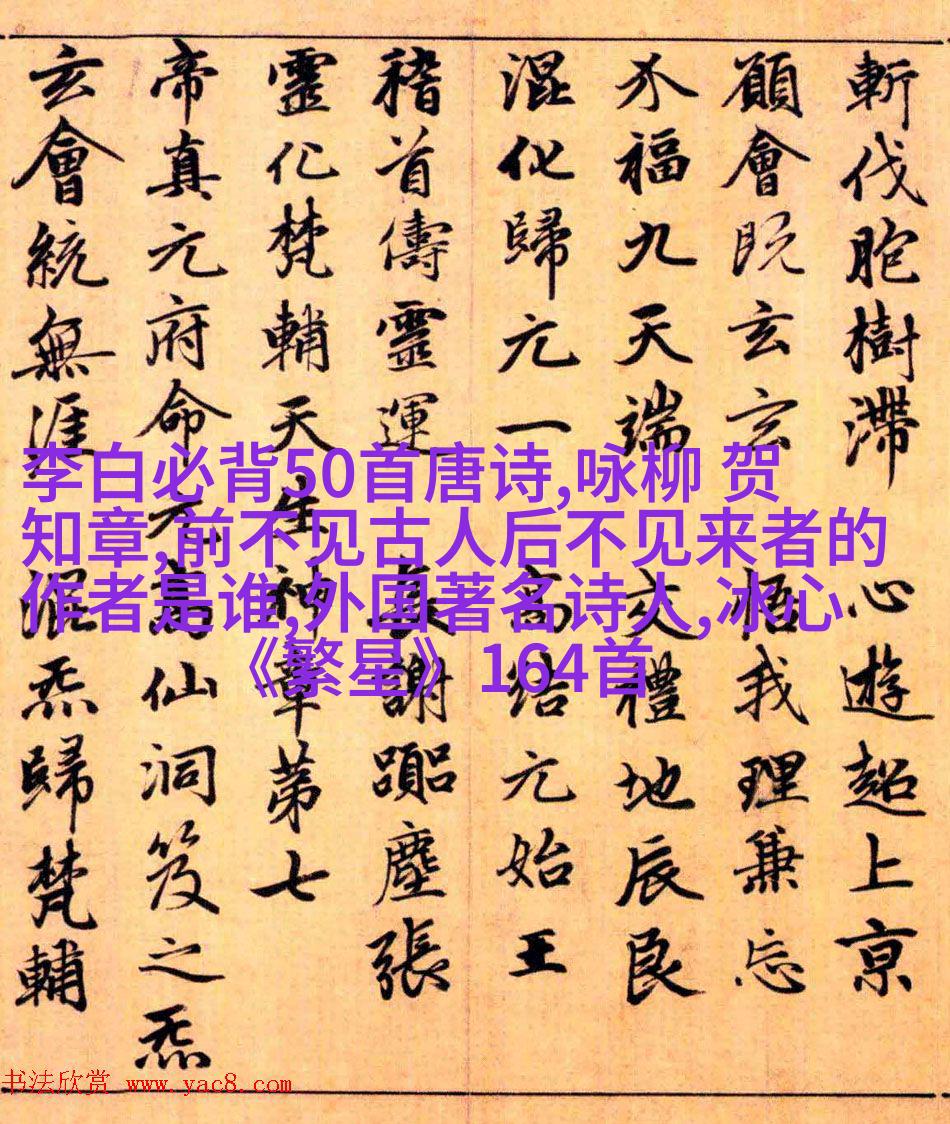 斬伐胞樹滯 心遊超上京
願會既玄玄 悟我理兼忘
介福九天端 交禮地辰良
混化歸元一 高結元始王
稽首儔靈運 謝塵張
靈化梵輔天生神章第七
帝真元府命元仙洞笈之炁
玄會統無涯混炁歸梵輔
李白必背50首唐诗,咏柳 贺
知章,前不见古人后不见来者的
作者是谁,外国著名诗人,冰心
《繁星》164首
书法欣赏 www.yac8.com